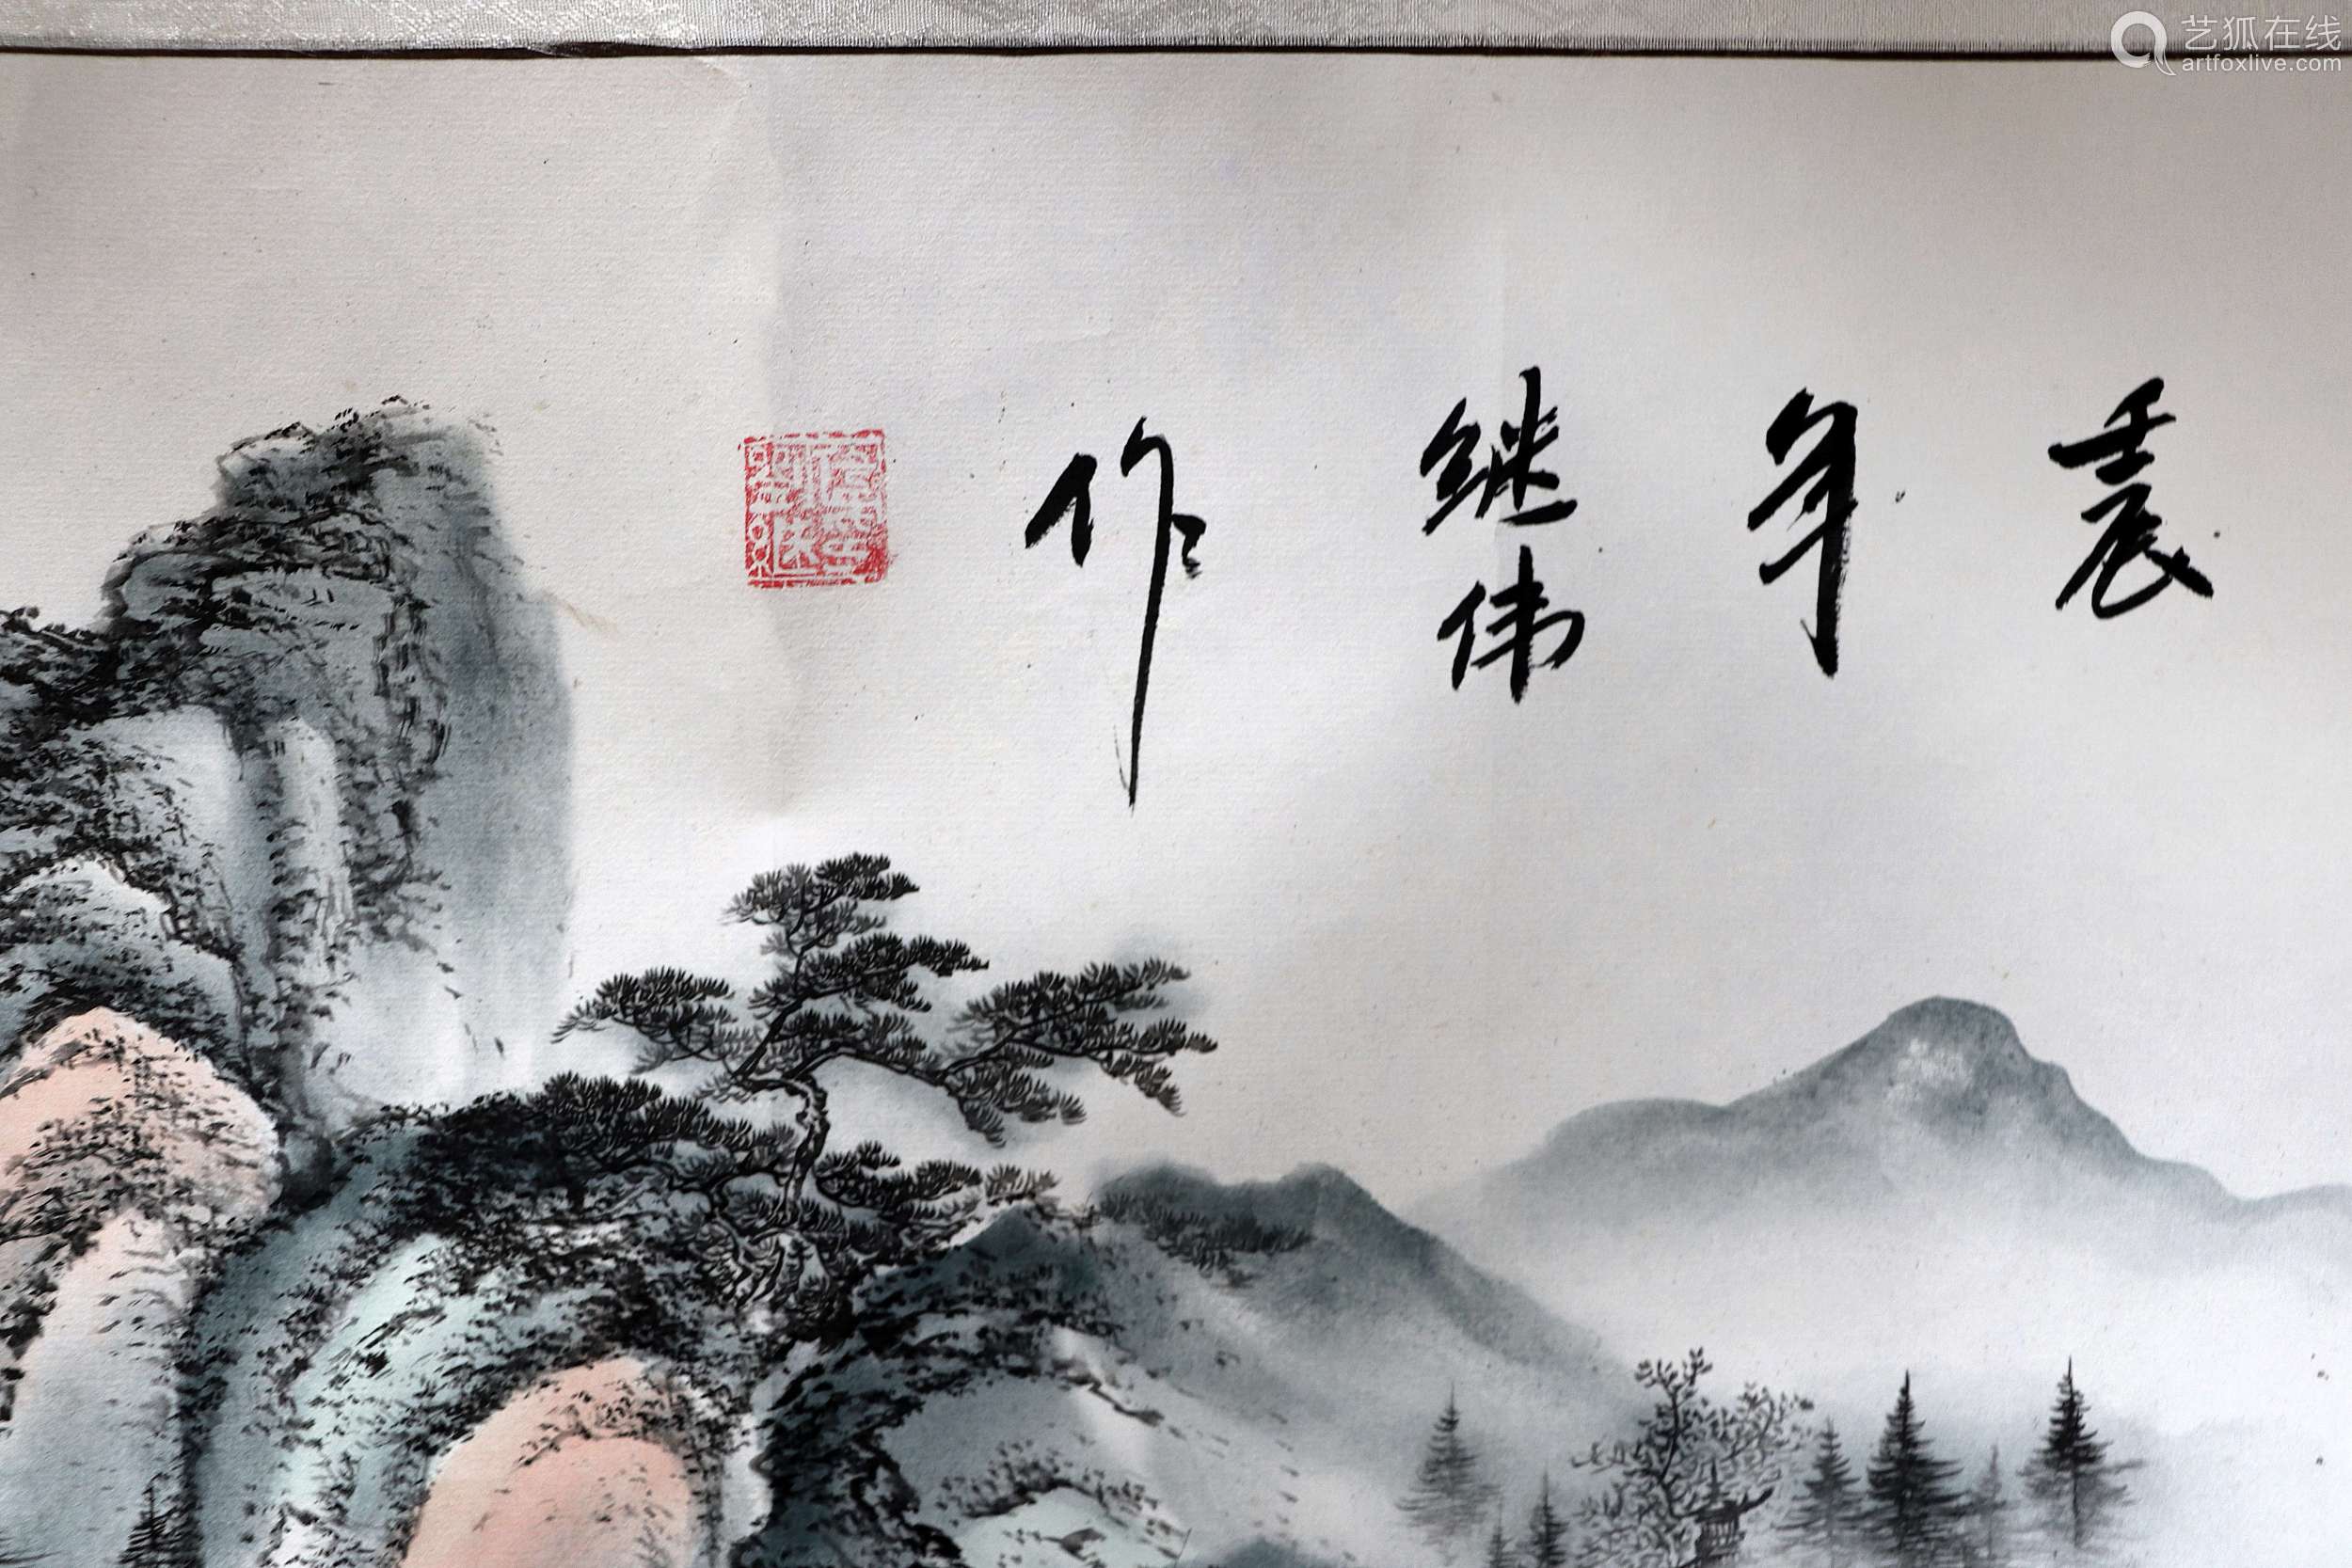 艺狐在线
artfoxlive.com
壬辰年继伟作